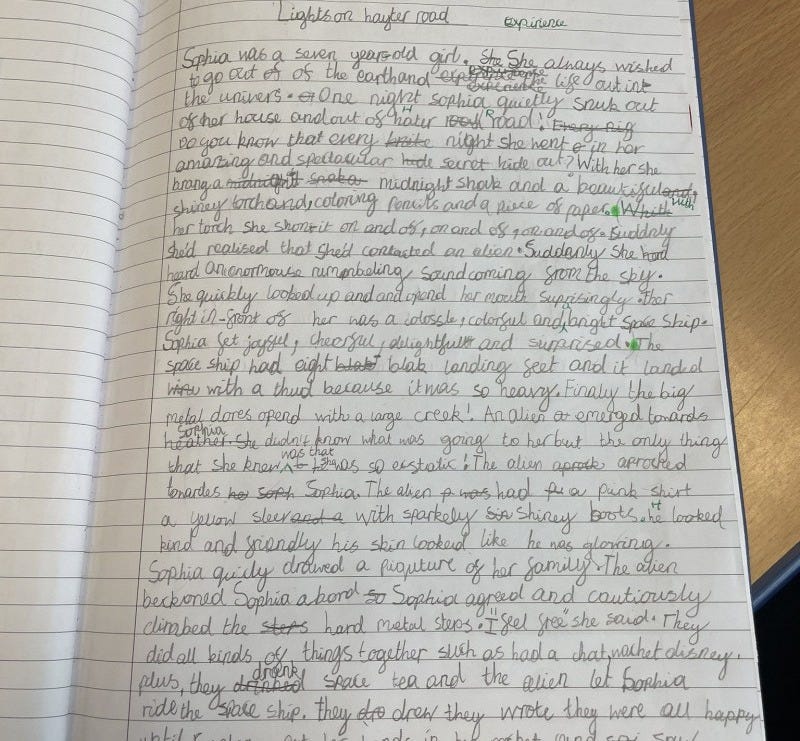 Lights on hayter road
experience
Sophia was a seven years old girl. She She always wished
to go out of of the earth and experience the life out int
the univers. One night sophia quietly snuk out
of her house and out of hater road! Every nig
Do you know that every night she went in her
amazing and spectacular hide secret hide out? With her she
brang a midnight snaka midnight snak and a beautiful and,
shiney torch and, coloring pencils and a piece of paper. Whith with
her torch she shon it on and of, on and of, on and of. Suddnly
she'd realised that she'd contacted an alien. Suddenly she hard
heard an enormouse rumnbaling sound coming from the sky.
She quickly looked up and and opend her mouth suprisingly. ther
right in-front of her was a colossle, colorful and bright space ship.
Sophia felt joyful, cheerful, delightfull and surprised. The
space ship had eight blak landing feet and it landed
with a thud because it was so heavy. Finaly the big
metal dores opend with a large creek! An alien emerged towards
Sophia
heather. She didn't know what was going to her but the only thing
was that
that she knew she was so ecstatic! The alien aproch aproched
towardes soph Sophia. The alien was had a punk shirt
a yellow sleev and a with sparkely shiney boots. he looked
kind and friendly his skin looked like he was glowing.
Sophia quicly drawed a piquture of her family. The alien
beckoned Sophia abord so Sophia agreed and cautiously
climbed the steps hard metal steps. "I feel free" she said. They
did all kinds of things together such as had a chat, wachet disney,
drienk
plus, they drinked space tea and the alien let Sophia
ride the space ship. they drew they wrote they were all happy